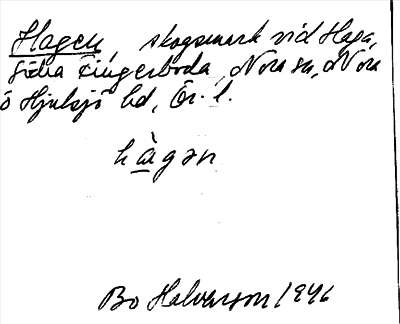 Hagen, skogsmark vid Haga,
södra Fingerboda, Nora sn, Nora
o Hjulsjö hd, Ör. l.
hàgən
Bo Halvarson 1946